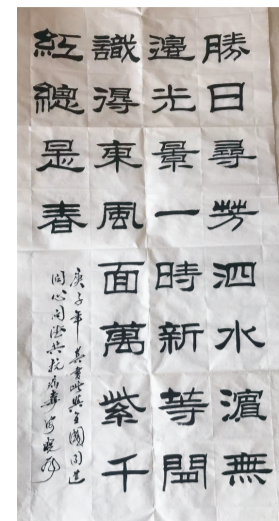 勝日尋芳泗水濵無
邊光景一時新等閒
識得東風面萬紫千
紅總是春
庚子年書此與全國同道
同心同德共抗病毒